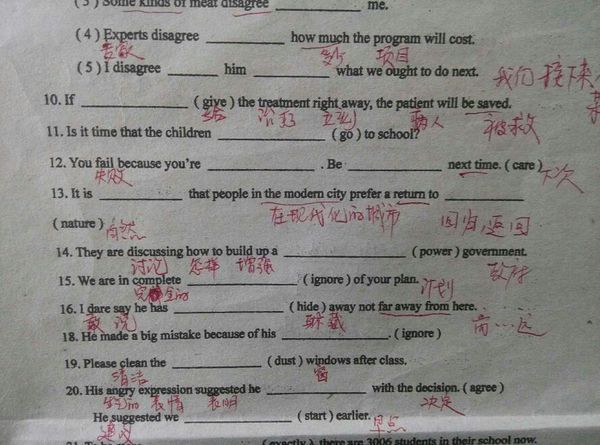 ( 3 ) Some kinds of meat disagree ________ me.
( 4 ) Experts disagree ________ how much the program will cost.
专家 多少 项目
( 5 ) I disagree ________ him ________ what we ought to do next.
我们 接下来
10. If ________ ( give ) the treatment right away, the patient will be saved.
给 治疗 立刻 病人 被救
11. Is it time that the children ________ ( go ) to school?
12. You fail because you're ________ . Be ________ next time. ( care )
失败 下次
13. It is ________ that people in the modern city prefer a return to ________
在现代化的城市 回归 返回
( nature ) 自然
14. They are discussing how to build up a ________ ( power ) government.
讨论 怎样 增强 政府
15. We are in complete ________ ( ignore ) of your plan.
完全的 计划
16. I dare say he has ________ ( hide ) away not far away from here.
敢 说 躲藏 离……远
18. He made a big mistake because of his ________ . ( ignore )
19. Please clean the ________ ( dust ) windows after class.
清洁 窗
20. His angry expression suggested he ________ with the decision. ( agree )
生气的 表情 表明 决定
He suggested we ________ ( start ) earlier.
建议 早点
( exactly ) there are 3006 students in their school now.